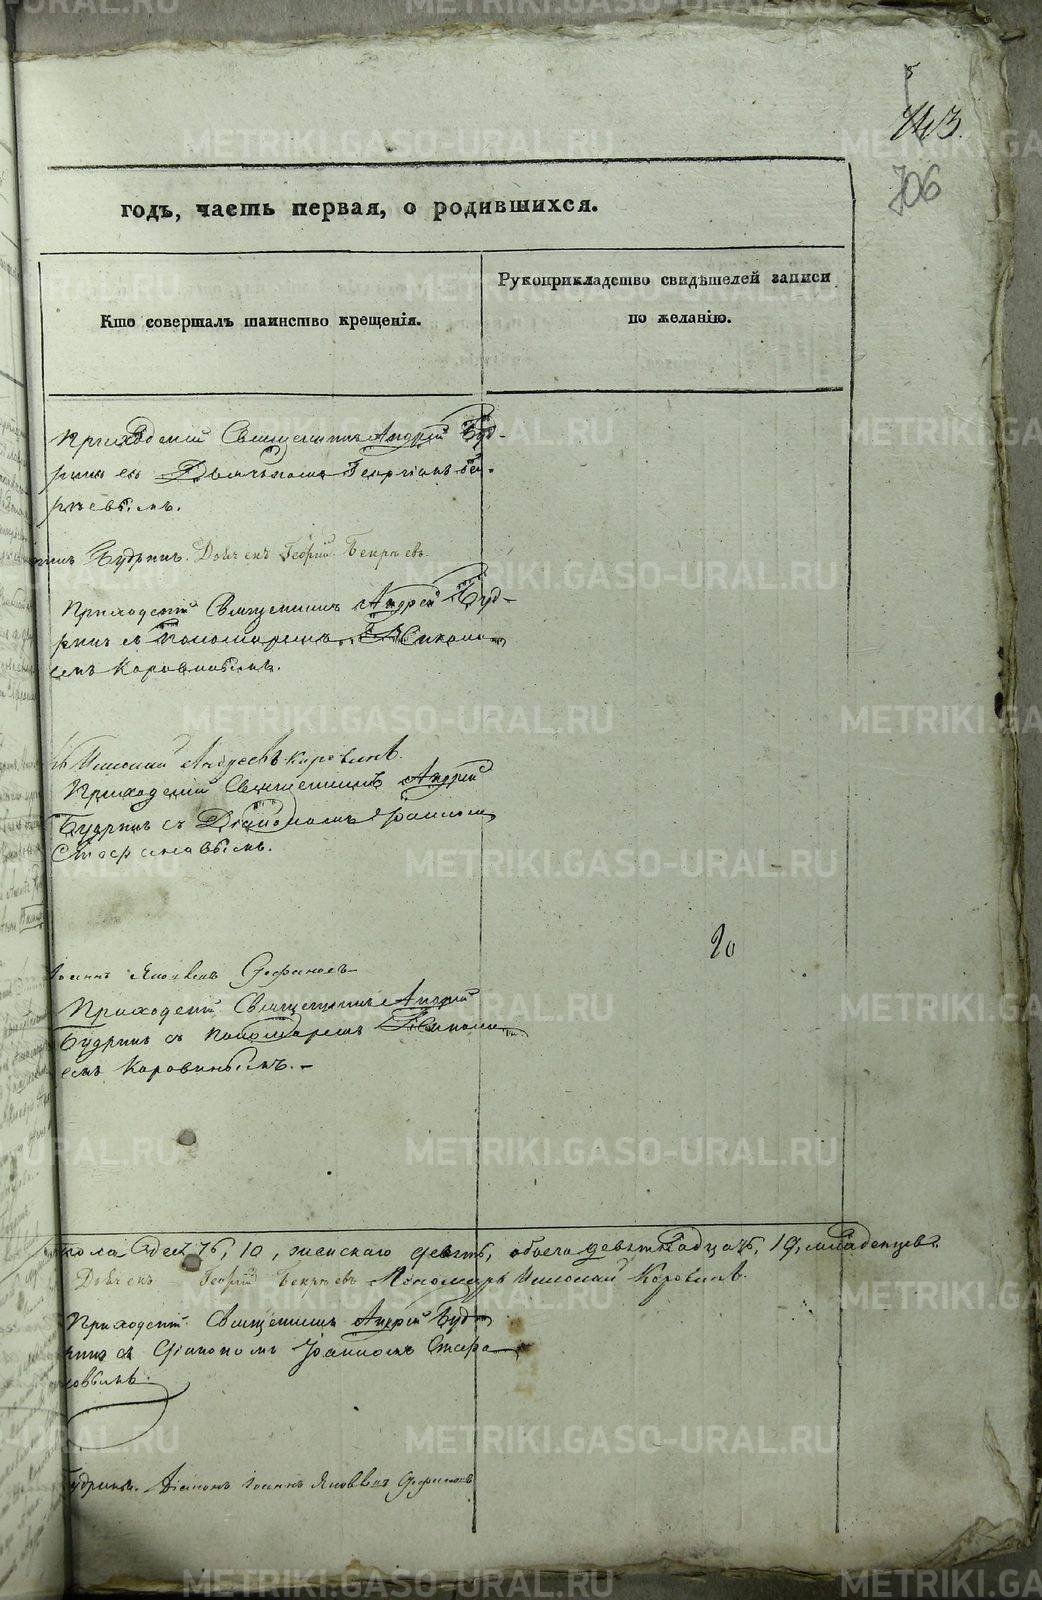 743
706
годъ, часть первая, о родившихся.
Кто совершалъ таинство крещенія.
Рукоприкладство свидѣтелей записи
по желанію.
Приходскій Священникъ Андрей Буд-
ринъ съ Дьячкомъ Георгіемъ Бек-
рѣевымъ.
Будринъ. Дьячекъ Георгій Бекрѣевъ.
Приходскій Священникъ Андрей Буд-
ринъ съ Пономаремъ Никола-
емъ Коровинымъ.
Николай Андреевъ Коровинъ.
Приходскій Священникъ Андрей
Будринъ съ Діакономъ Іоанном
Стефановымъ.
20
Іоаннъ Яковлевъ Стефановъ
Приходскій Священникъ Андрей
Будринъ съ Пономаремъ Никола-
емъ Коровинымъ.-
пола десять, 10, женскаго девять, обоего девятнадцать, 19, младенцевъ.
Дьячекъ Георгій Бекрѣевъ Пономарь Николай Коровинъ.
Приходскій Священникъ Андрей Буд-
ринъ съ Діакономъ Іоанномъ Стефа-
новымъ.
Будринъ. Діаконъ Іоаннъ Яковлевъ Стефановъ
METRIKI.GASO-URAL.RU